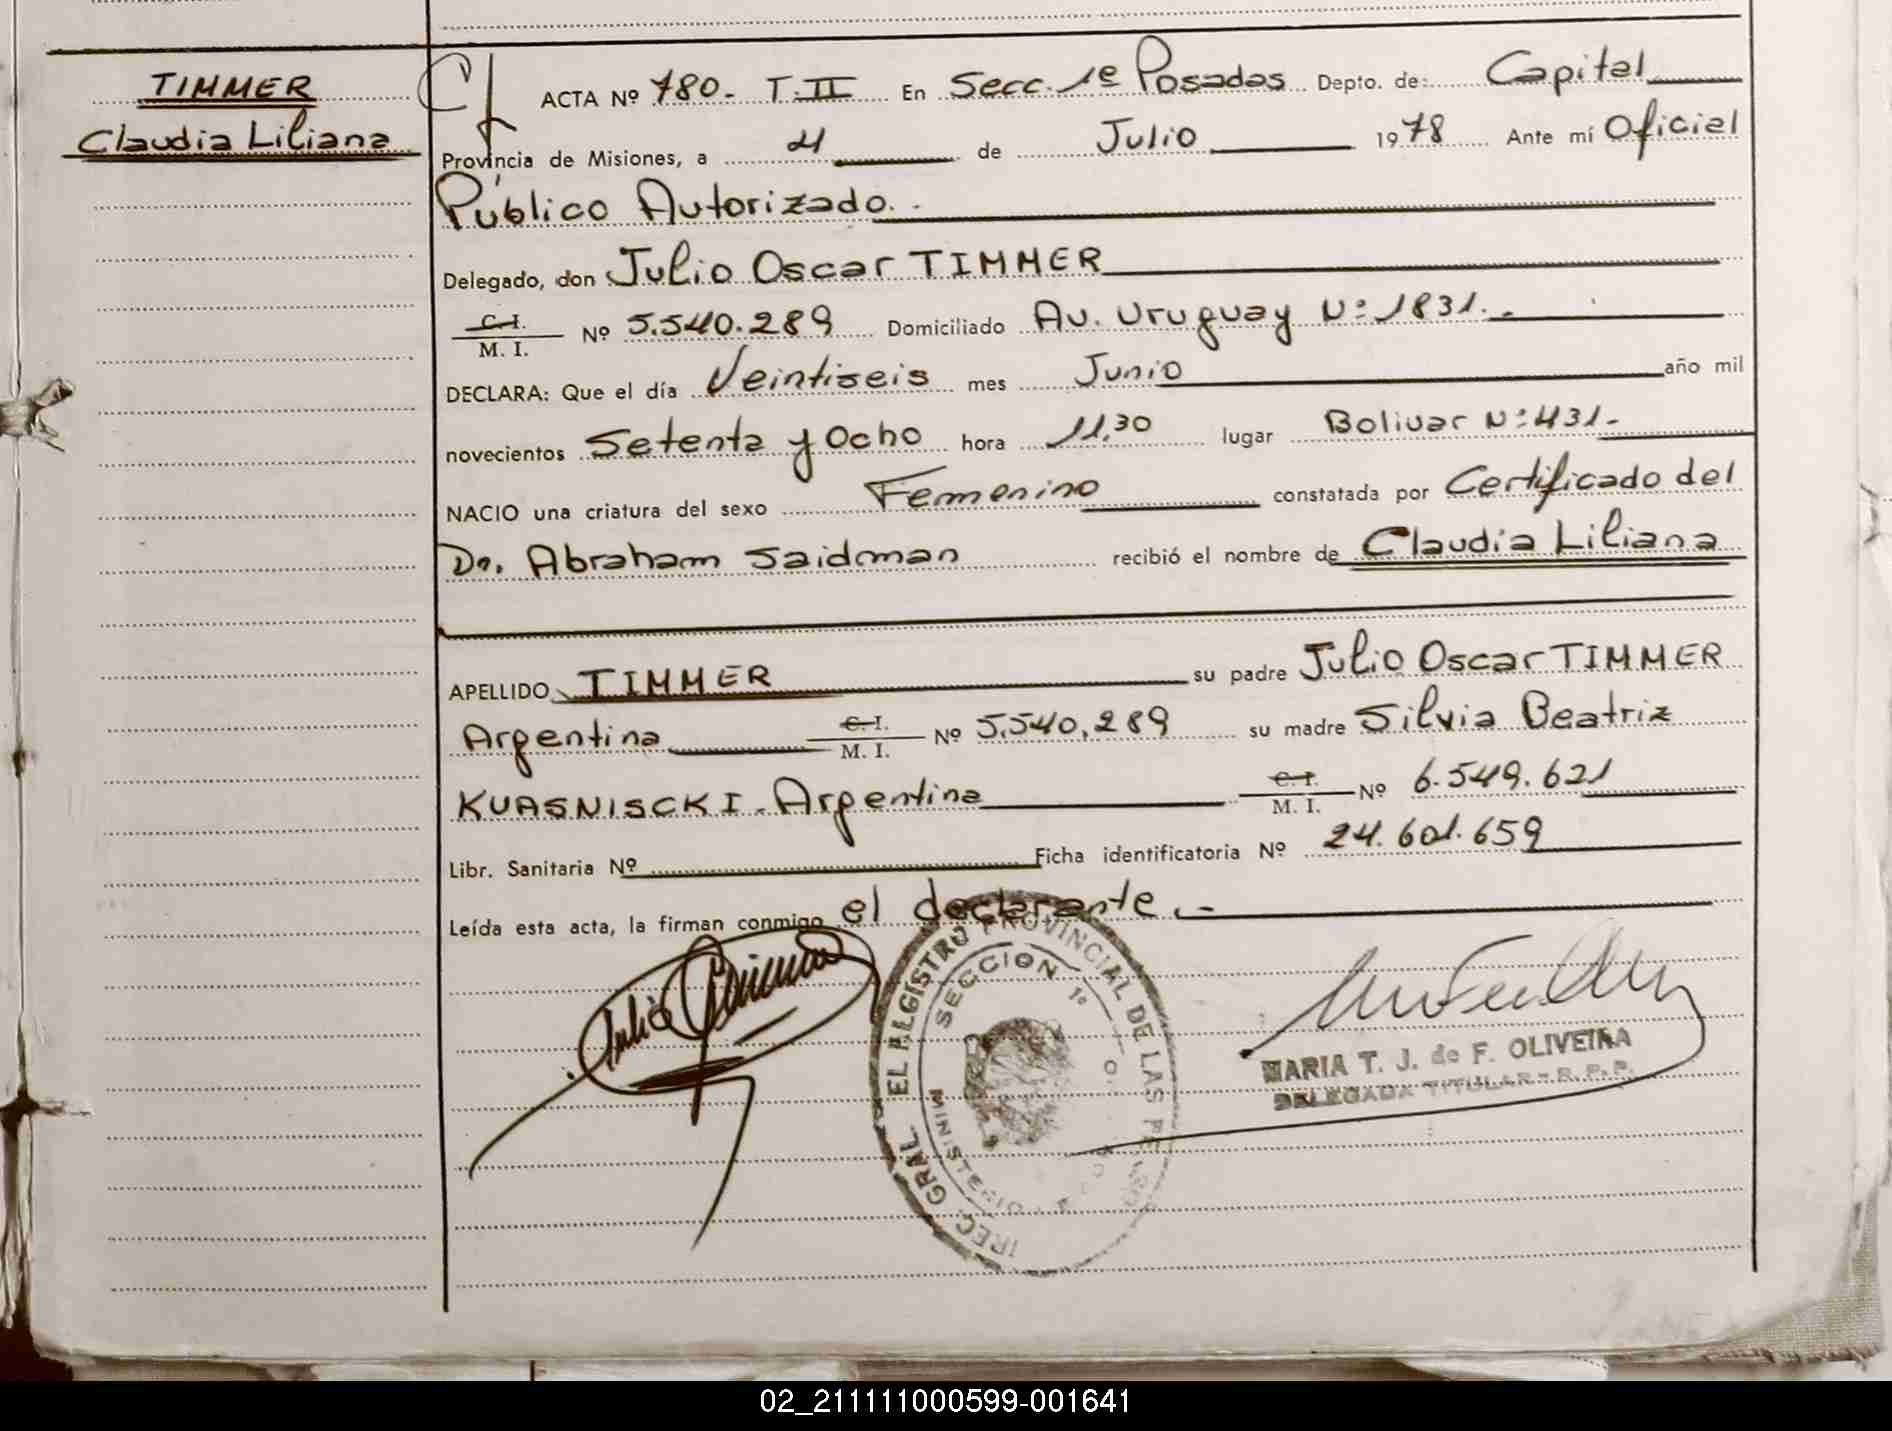 TIMMER
Claudia Liliana
ACTA Nº 780. T.II En Secc. 1º Posadas Depto. de: Capital
Provincia de Misiones, a 4 de Julio 1978 Ante mí Oficiel
Público Autorizado.-
Delegado, don Julio Oscar TIMMER
C.I.
M. I. Nº 5.540.289 Domiciliado Av. Uruguay Nº 1831.-
DECLARA: Que el día Veintiseis mes Junio año mil
novecientos Setenta y Ocho hora 11,30 lugar Bolivar Nº 431.-
NACIO una criatura del sexo Femenino constatada por Certificado del
Dr. Abraham Saidman recibió el nombre de Claudia Liliana
APELLIDO TIMMER su padre Julio Oscar TIMMER
Argentina C.I. M. I. Nº 5.540.289 su madre Silvia Beatriz
KUASNISCKI. Argentina C.I. M. I. Nº 6.549.621
Libr. Sanitaria Nº Ficha identificatoria Nº 24.601.659
Leída esta acta, la firman conmigo el declarante.-
REGISTRO PROVINCIAL DE LAS
SECCION 1º
MINISTERIO
GRAL.
MARIA T. J. de F. OLIVEIRA
DELEGADA TITULAR - R. P. P.
02_211111000599-001641